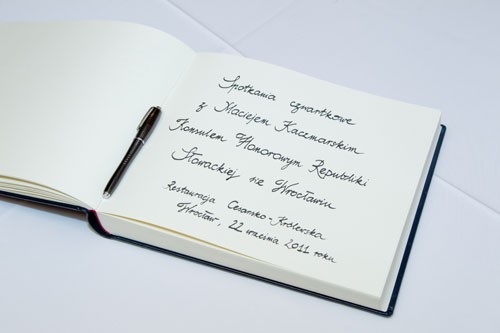 Spotkania czwartkowe
z Maciejem Kaczmarskim
Konsulem Honorowym Republiki
Słowackiej we Wrocławiu
Restauracja Cesarsko-Królewska
Wrocław, 22 września 2011 roku